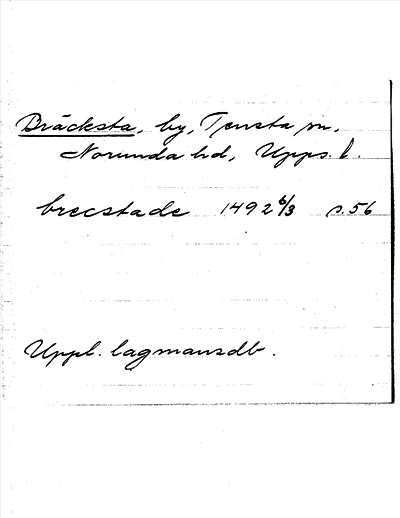 Bräcksta, by, Tensta sn,
Norunda hd, Upps. l.
brecstade 1492 6/3 s. 56
Uppl. lagmansdb.